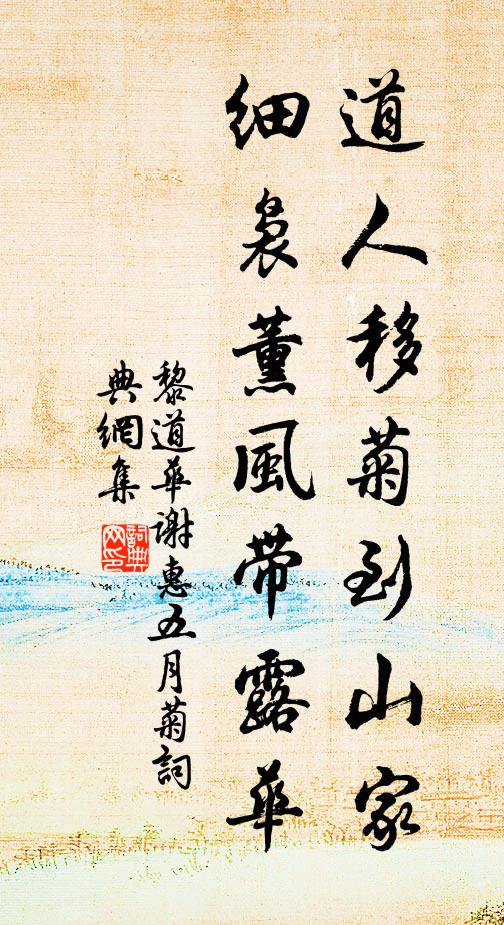 道人移菊到山家
細裊薰風帶露華
黎道華謝惠五月菊詞
典網集
詞典網印